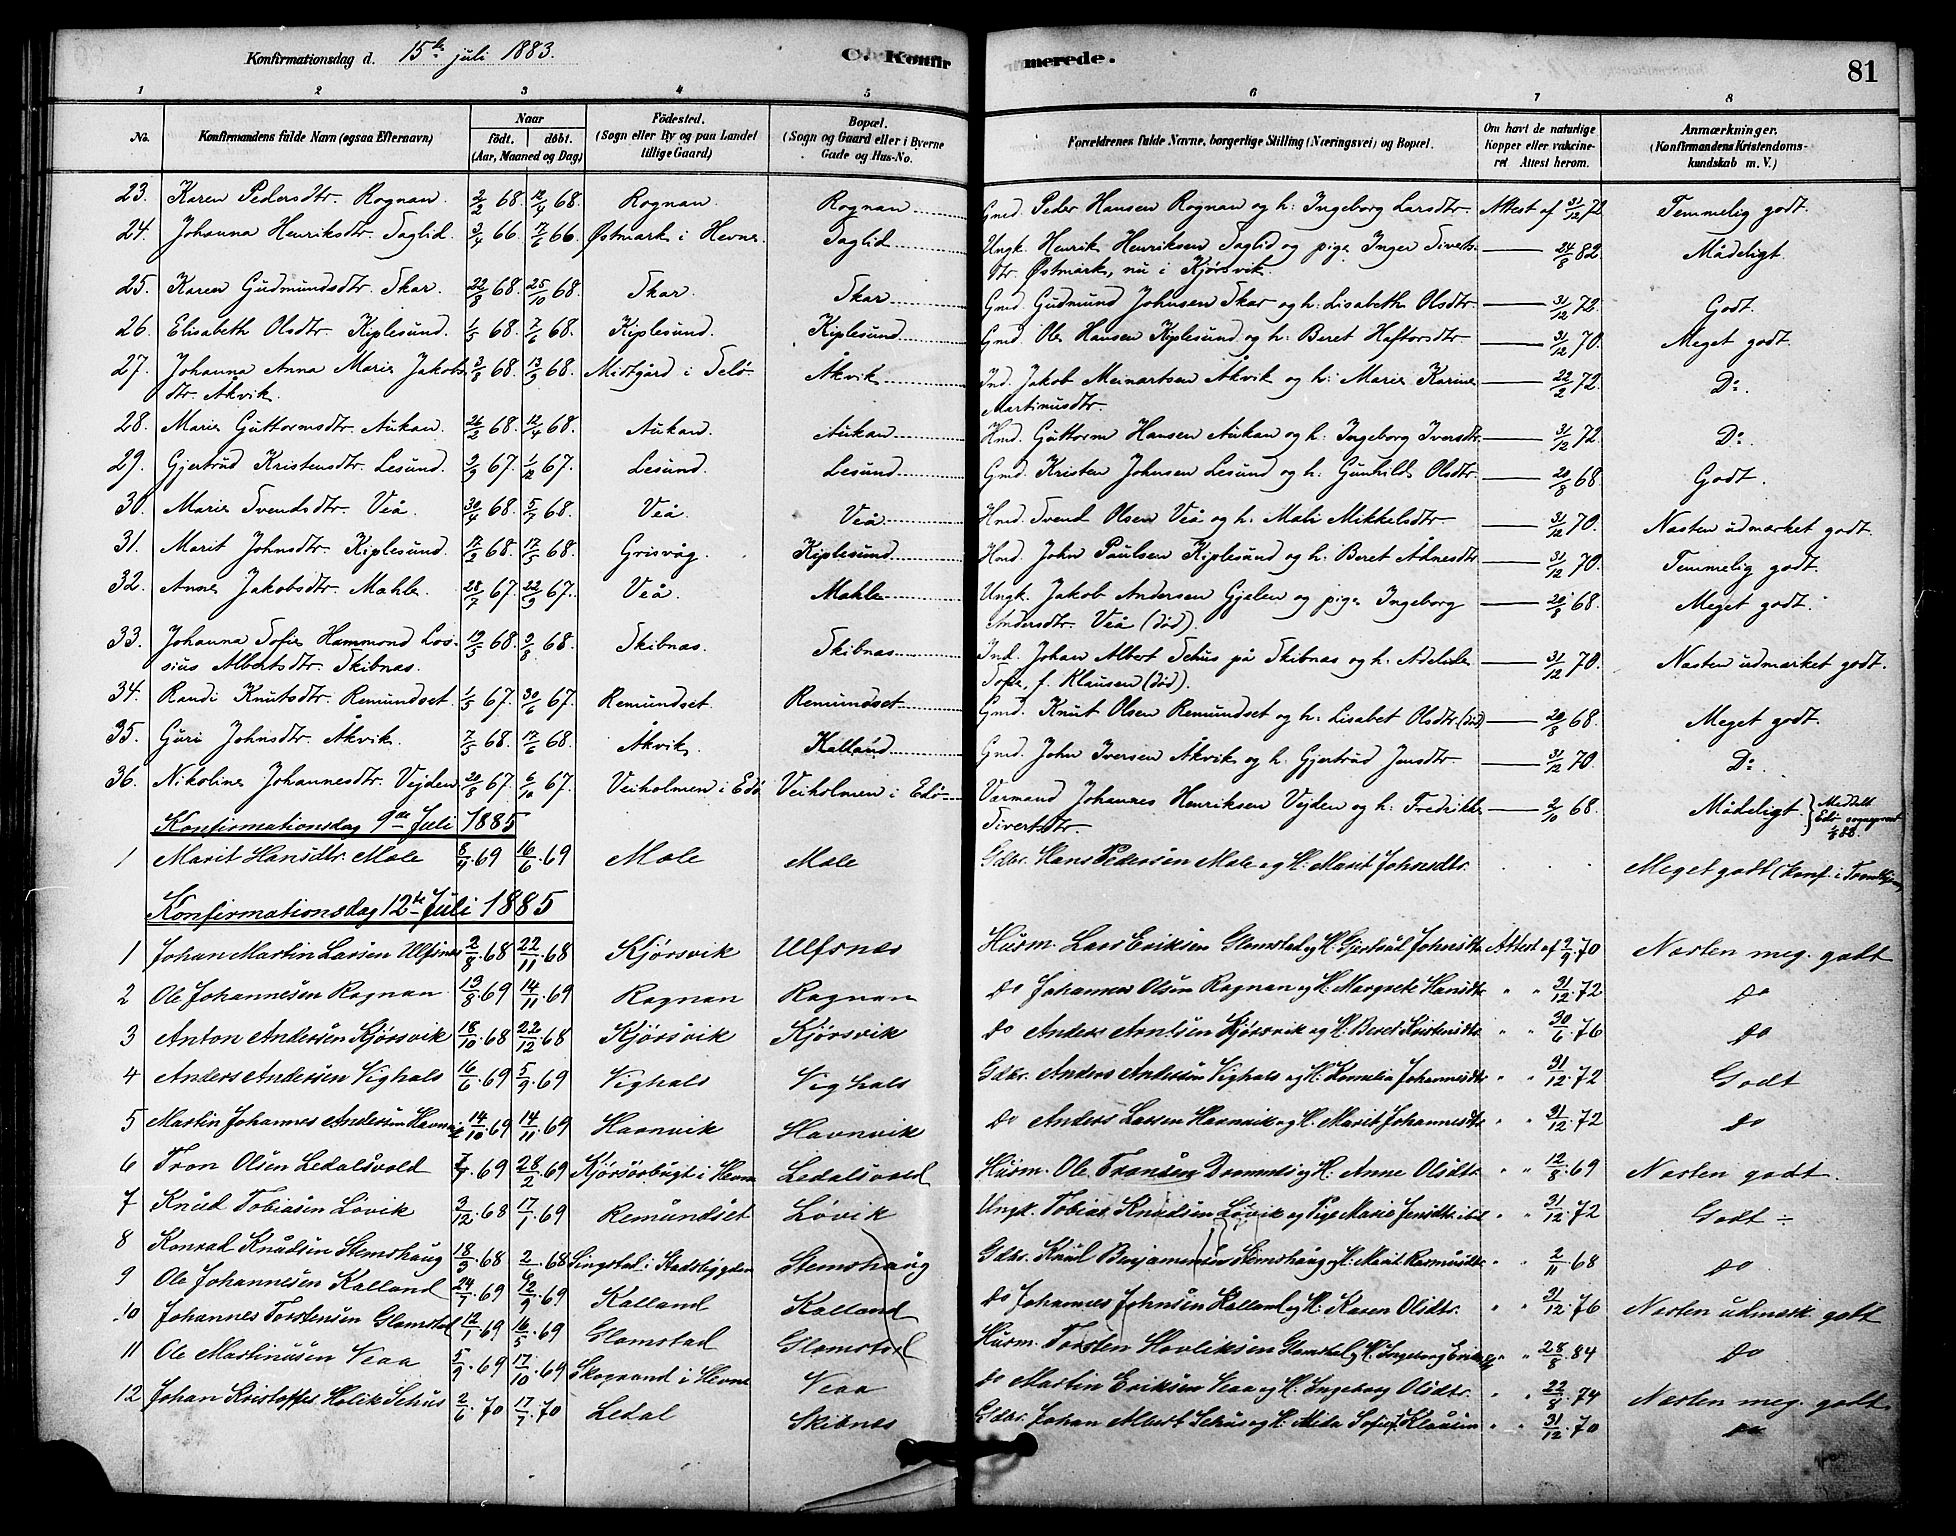 Konfirmationsdag d. 15de juli 1883. C. Konfirmerede. 81
1 2 3 4 5 6 7 8
No. Konfirmandens fulde Navn (ogsaa Efternavn) Naar födt. döbt. (Aar, Maaned og Dag) Födested. (Sogn eller By og paa Landet tillige Gaard) Bopæl. (Sogn og Gaard eller i Byerne Gade og Hus-No. Forældrenes fulde Navne, borgerlige Stilling (Næringsvei) og Bopæl. Om havt de naturlige Kopper eller vakcineret Attest herom. Anmærkninger. (Konfirmandens Kristendomskundskab m. V.)
23. Karen Pedersdtr. Rognan. 2/2 68. 12/4 68. Rognan. Rognan Gmd. Peder Hansen Rognan og h: Ingeborg Larsdtr. Attest af 31/12 72. Temmelig godt.
24. Johanna Henriksdtr. Taglid. 3/4 66. 17/6 66. Østmark i Hevne. Taglid Ungk. Henrik Henriksen Taglid og pige Inger Siverts-
dtr. Østmark, nu i Kjørsvik. 24/8 82. Mådeligt.
25. Karen Gudmundsdtr. Skar. 22/8 68. 25/10 68. Skar. Skar Gmd. Gudmund Johnsen Skar og h: Lisabeth Olsdtr. 31/12 72. Godt.
26. Elisabeth Olsdtr. Kiplesund. 1/5 68. 7/6 68. Kiplesund. Kiplesund Gmd. Ole Hansen Kiplesund og h: Beret Haftorsdtr 31/12 70. Meget godt.
27. Johanna Anna Marie Jakobs- 3/8 68. 13/9 68. Midtgård i Selø. Åkvik Ind. Jakob Meinartsen Åkvik og h: Marie Karine 22/2 72. Do.
dtr. Åkvik. Martinusdtr.
28. Marie Guttormsdtr. Aukan. 26/2 68. 12/4 68. Aukan. Aukan Hmd. Guttorm Hansen Aukan og h: Ingeborg Iversdtr. 31/12 72. Do.
29. Gjertrud Kristensdtr. Lesund. 3/9 67. 1/12 67. Lesund. Lesund Gmd. Kristen Johnsen Lesund og h: Gunhild Olsdtr. 20/8 68. Godt.
30. Marie Svendsdtr. Veå. 30/4 68. 5/7 68. Veå. Veå Hmd. Svend Olsen Veå og h: Mali Mikkelsdtr. 31/12 70. Næsten udmærket godt.
31. Marit Johnsdtr. Kiplesund. 17/2 68. 17/5 68. Grisvåg. Kiplesund Hmd. John Paulsen Kiplesund og h: Beret Ådnesdtr 31/12 70. Temmelig godt.
32. Anne Jakobsdtr. Mahle. 28/7 67. 22/9 67. Veå. Mahle Ungk. Jakob Andersen Gjelen og pige Ingeborg 20/8 68. Meget godt.
Andersdtr. Veå (død).
33. Johanna Sofie Hammond Los- 19/5 68. 9/8 68. Skibnæs. Skibnæs Ind. Johan Albert Schus på Skibnæs og h: Adelide 31/12 70. Næsten udmærket godt.
sius Albertsdtr. Skibnæs. Sofie f. Klausen (død).
34. Randi Knutsdtr. Remundset. 1/5 67. 30/6 67. Remundset. Remundset Gmd. Knut Olsen Remundset og h: Lisabet Olsdtr (død) 20/8 68. Meget godt.
35. Guri Johnsdtr. Åkvik. 7/5 68. 17/6 68. Åkvik. Kalland Gmd. John Iversen Åkvik og h: Gjertrud Jensdtr. 31/12 70. Do.
36. Nikoline Johannesdtr. Vejden 20/8 67. 6/10 67. Veiholmen i Edø Veiholmen i Edø Værmand Johannes Henriksen Vejden og h: Fredrikke 2/10 68. Mådeligt. Meddelt Edø
Sivertsdtr.
Konfirmationsdag 9de Juli 1885
1 Marit Hansdtr. Male 8/4.69 16/6.69 Male Male Gdbr. Hans Pedersen Male og H. Marit Johnsdtr. Meget godt (konf. i Trondhjem)
Konfirmationsdag 12te Juli 1885
1 Johan Martin Larsen Ulfsnes 2/8.68 22/11.68 Kjørsvik Ulfsnes Husm. Lars Eriksen Glamstad og H. Gjertrud Johnsdtr Attest af 9/9.70 Næsten meg. godt
2 Ole Johannesen Rognan 13/8.69 14/11.69 Rognan Rognan do Johannes Olsen Rognan og H. Margrete Hansdtr " " 31/12.72 do
3 Anton Andersen Kjørsvik 18/10.68 22/12.68 Kjørsvik Kjørsvik do Anders Arntsen Kjørsvik og H. Beret Kristensdtr " " 30/6.76 do
4 Anders Andersen Vighals 16/6.69 5/9.69 Vighals Vighals Gdbr. Anders Andersen Vighals og H. Kornelia Johannesdtr " " 31/12.72 Godt
5 Martin Johannes Andersen Havnvik 14/10.69 14/11.69 Havnvik Havnvik do Anders Larsen Havnvik og H. Marit Johannesdtr " " 31/12.72 do
6 Tron Olsen Ledalsvold .69 28/2.69 Kjørsørbugt i Hevne Ledalsvold Husm. Ole Tronsen og H. Anne Olsdtr. " " 12/8.69 Næsten godt.
7 Knud Tobiasen Løvik 3/12.68 17/1.69 Remundset Løvik Ungk. Tobias Knudsen Løvik og Pige Marie Jensdtr. ibd " " 31/12.72 Godt ÷
8 Konrad Knudsen Stemshaug 18/3.68 2/6.68 Singstad i Stadsbygden Stemshaug Gdbr. Knud Benjaminsen Stemshaug og H. Marit Rasmusdtr " " 2/11.68 do
9 Ole Johannesen Kalland 24/7.69 12/9.69 Kalland Kalland do Johannes Johnsen Kalland og H. Karen Olsdtr. " " 31/12.76 Næsten udmærk. godt
10 Johannes Torstensen Glamstad 12/1.69 16/5.69 Glamstad Glamstad Husm. Torsten Havliksen Glamstad og H. Ingeborg " " 28/8.84 do
11 Ole Martinusen Veaa 5/9.69 17/10.69 Skogrand i Hevne Veaa do Martin Eriksen Veaa og H. Ingeborg Olsdtr. " " 22/8.74 Næsten meg. godt.
12 Johan Kristoffer Holck Schus 2/6.70 17/7.70 Ledal Skibnes Gdbr. Johan Albert Schus og H. Sofie f. Klausen " " 31/12.70 do